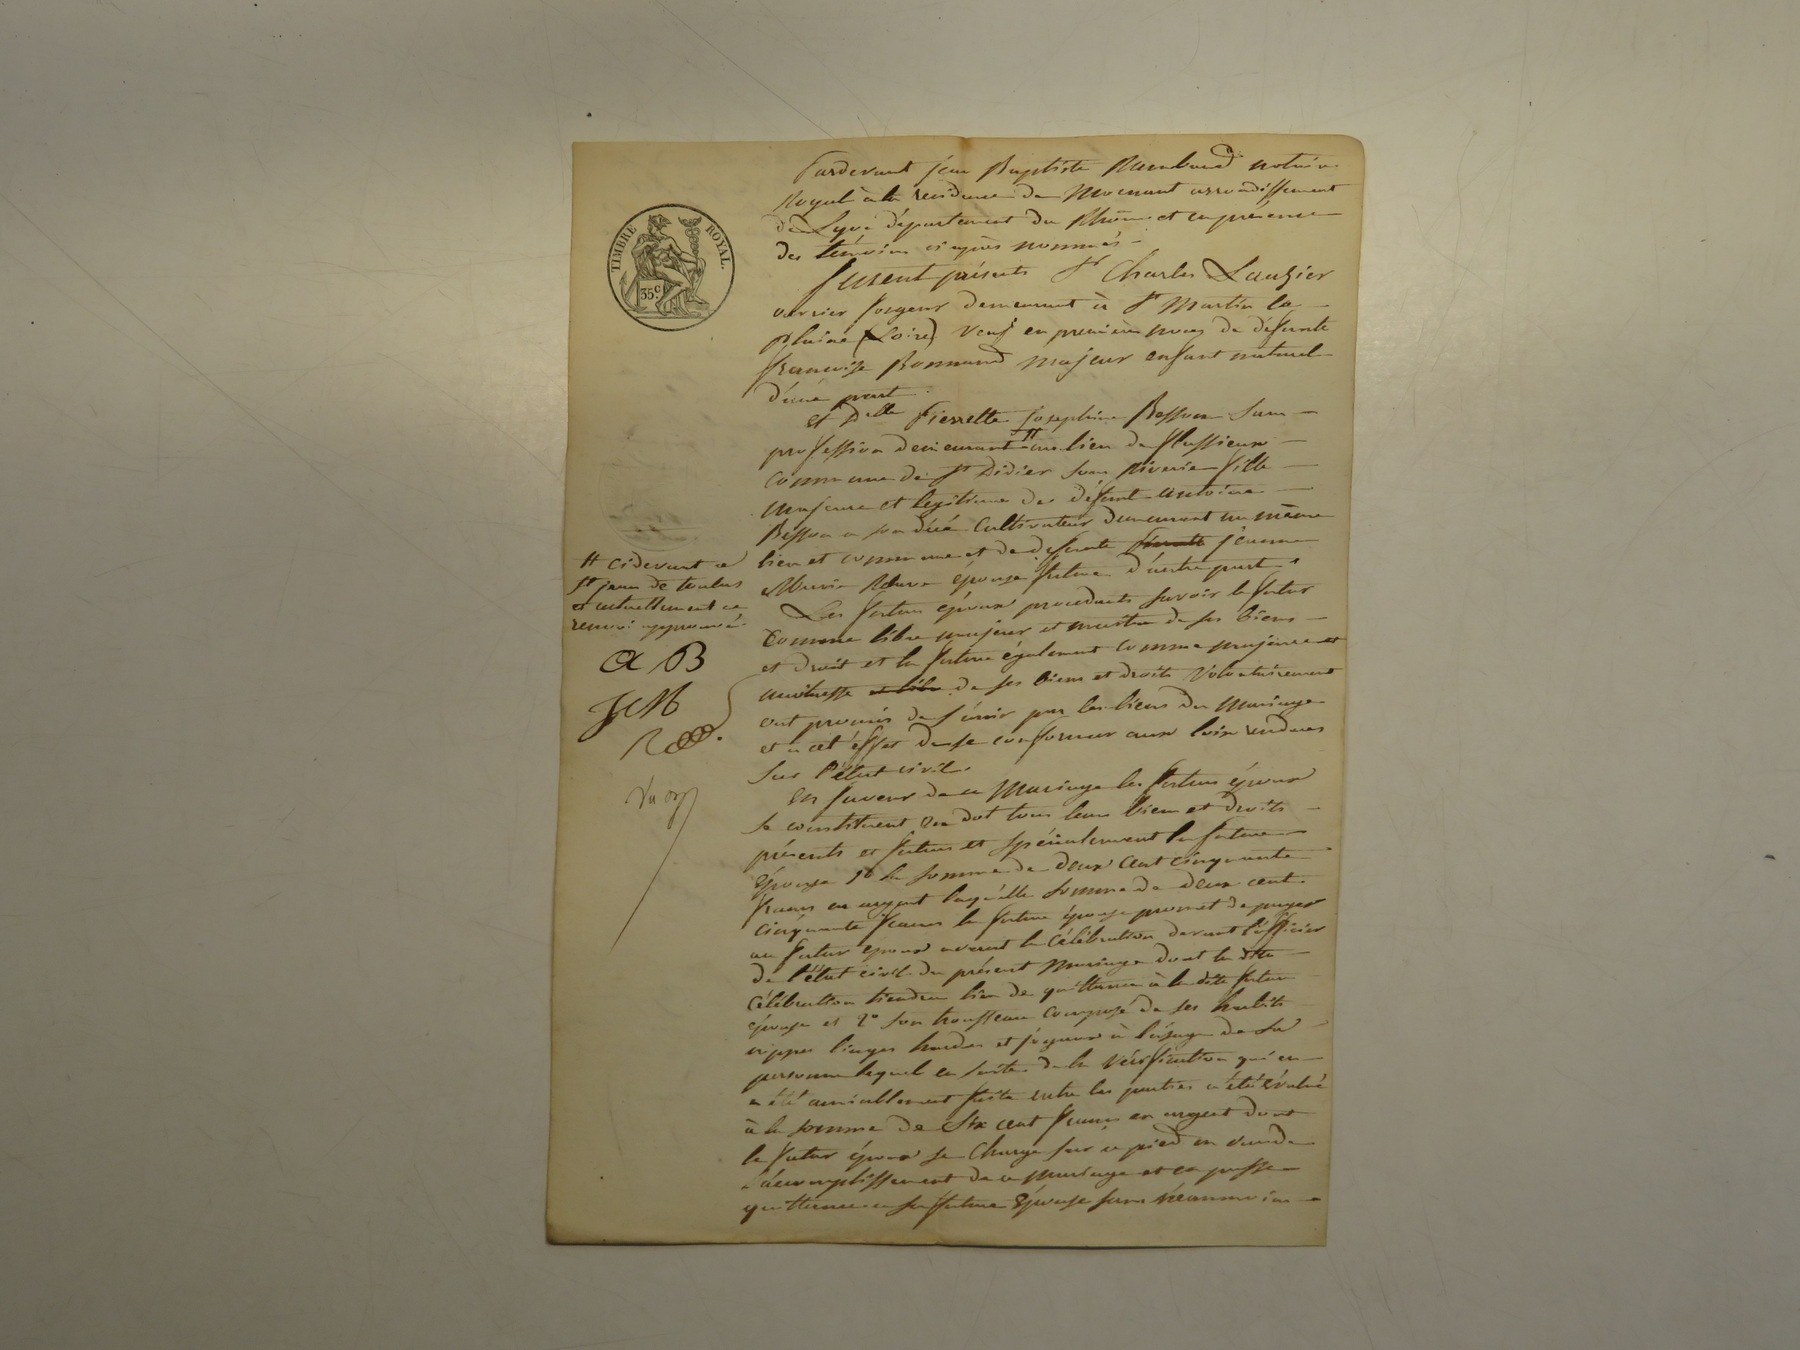 TIMBRE ROYAL.
35 c.
Pardevant jean Baptiste Raimbaud notaire
Royal à la residence de Mornant arrondissement
de Lyon département du Rhône et en présence
des témoins ci après nommés -
furent présents Sr Charles Lauzier
ouvrier forgeur demeurant à St Martin la
plaine (Loire) veuf en premières noces de défunte
francoise Bonnand majeur enfant naturel
d'une part.
et Delle Pierrette josephine Besson sans
profession demeurant # au lieu de
commune de St Didier sous Riverie fille
majeure et legitime de défunt antoine
Besson a son décé Cultivateur demeurant au même
lieu et commune et de defunte jeanne
Marie épouse future d'autre part
Les futurs époux procedants savoir le futur
Comme libre majeur et maitre de ses biens
et droit et la future également comme majeure et
maitresse et libre de ses biens et droits volontairement
ont promis de s'unir par les liens du mariage
et a cet effet de se conformer aux loix rendues
sur l'état civil.
en faveur de ce mariage les futurs époux
se constituent en dot tous leurs biens et droits
présents et futurs et spécialement la future
épouse 1° la somme de deux cent cinquante
francs en argent laquelle somme de deux cent
cinquante francs la future épouse promet de payer
au futur époux avant la célébration devant l'officier
de l'état civil du présent mariage dont la dite
célébration tiendra lieu de quittance à la dite future
épouse et 2° son trousseau composé de ses habits
nippes linges hardes et joyaux à l'usage de sa
personne lequel en suite de la vérification qui en
a été amiablement faite entre les parties a été évalué
à la somme de six cent francs en argent dont
le futur époux se charge sur ce pied au vu de
l'accomplissement de ce mariage et en passe
quittance a sa future épouse sans néanmoins
# cidevant a
St jean de toulas
et actuellement ce
renvoi approuvé.
a B